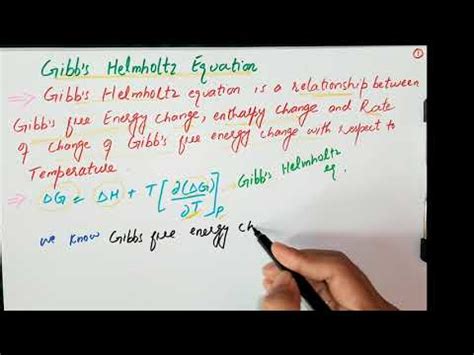 ①
Gibb's Helmholtz Equation
⇒ Gibb's Helmholtz equation is a relationship between
Gibb's free Energy change, enthalpy change and Rate
of change of Gibb's free energy change with respect to
Temperature.
⇒ ΔG = ΔH + T[∂(ΔG)/∂T]p → Gibb's Helmholtz
eq.
we know Gibbs free energy ch